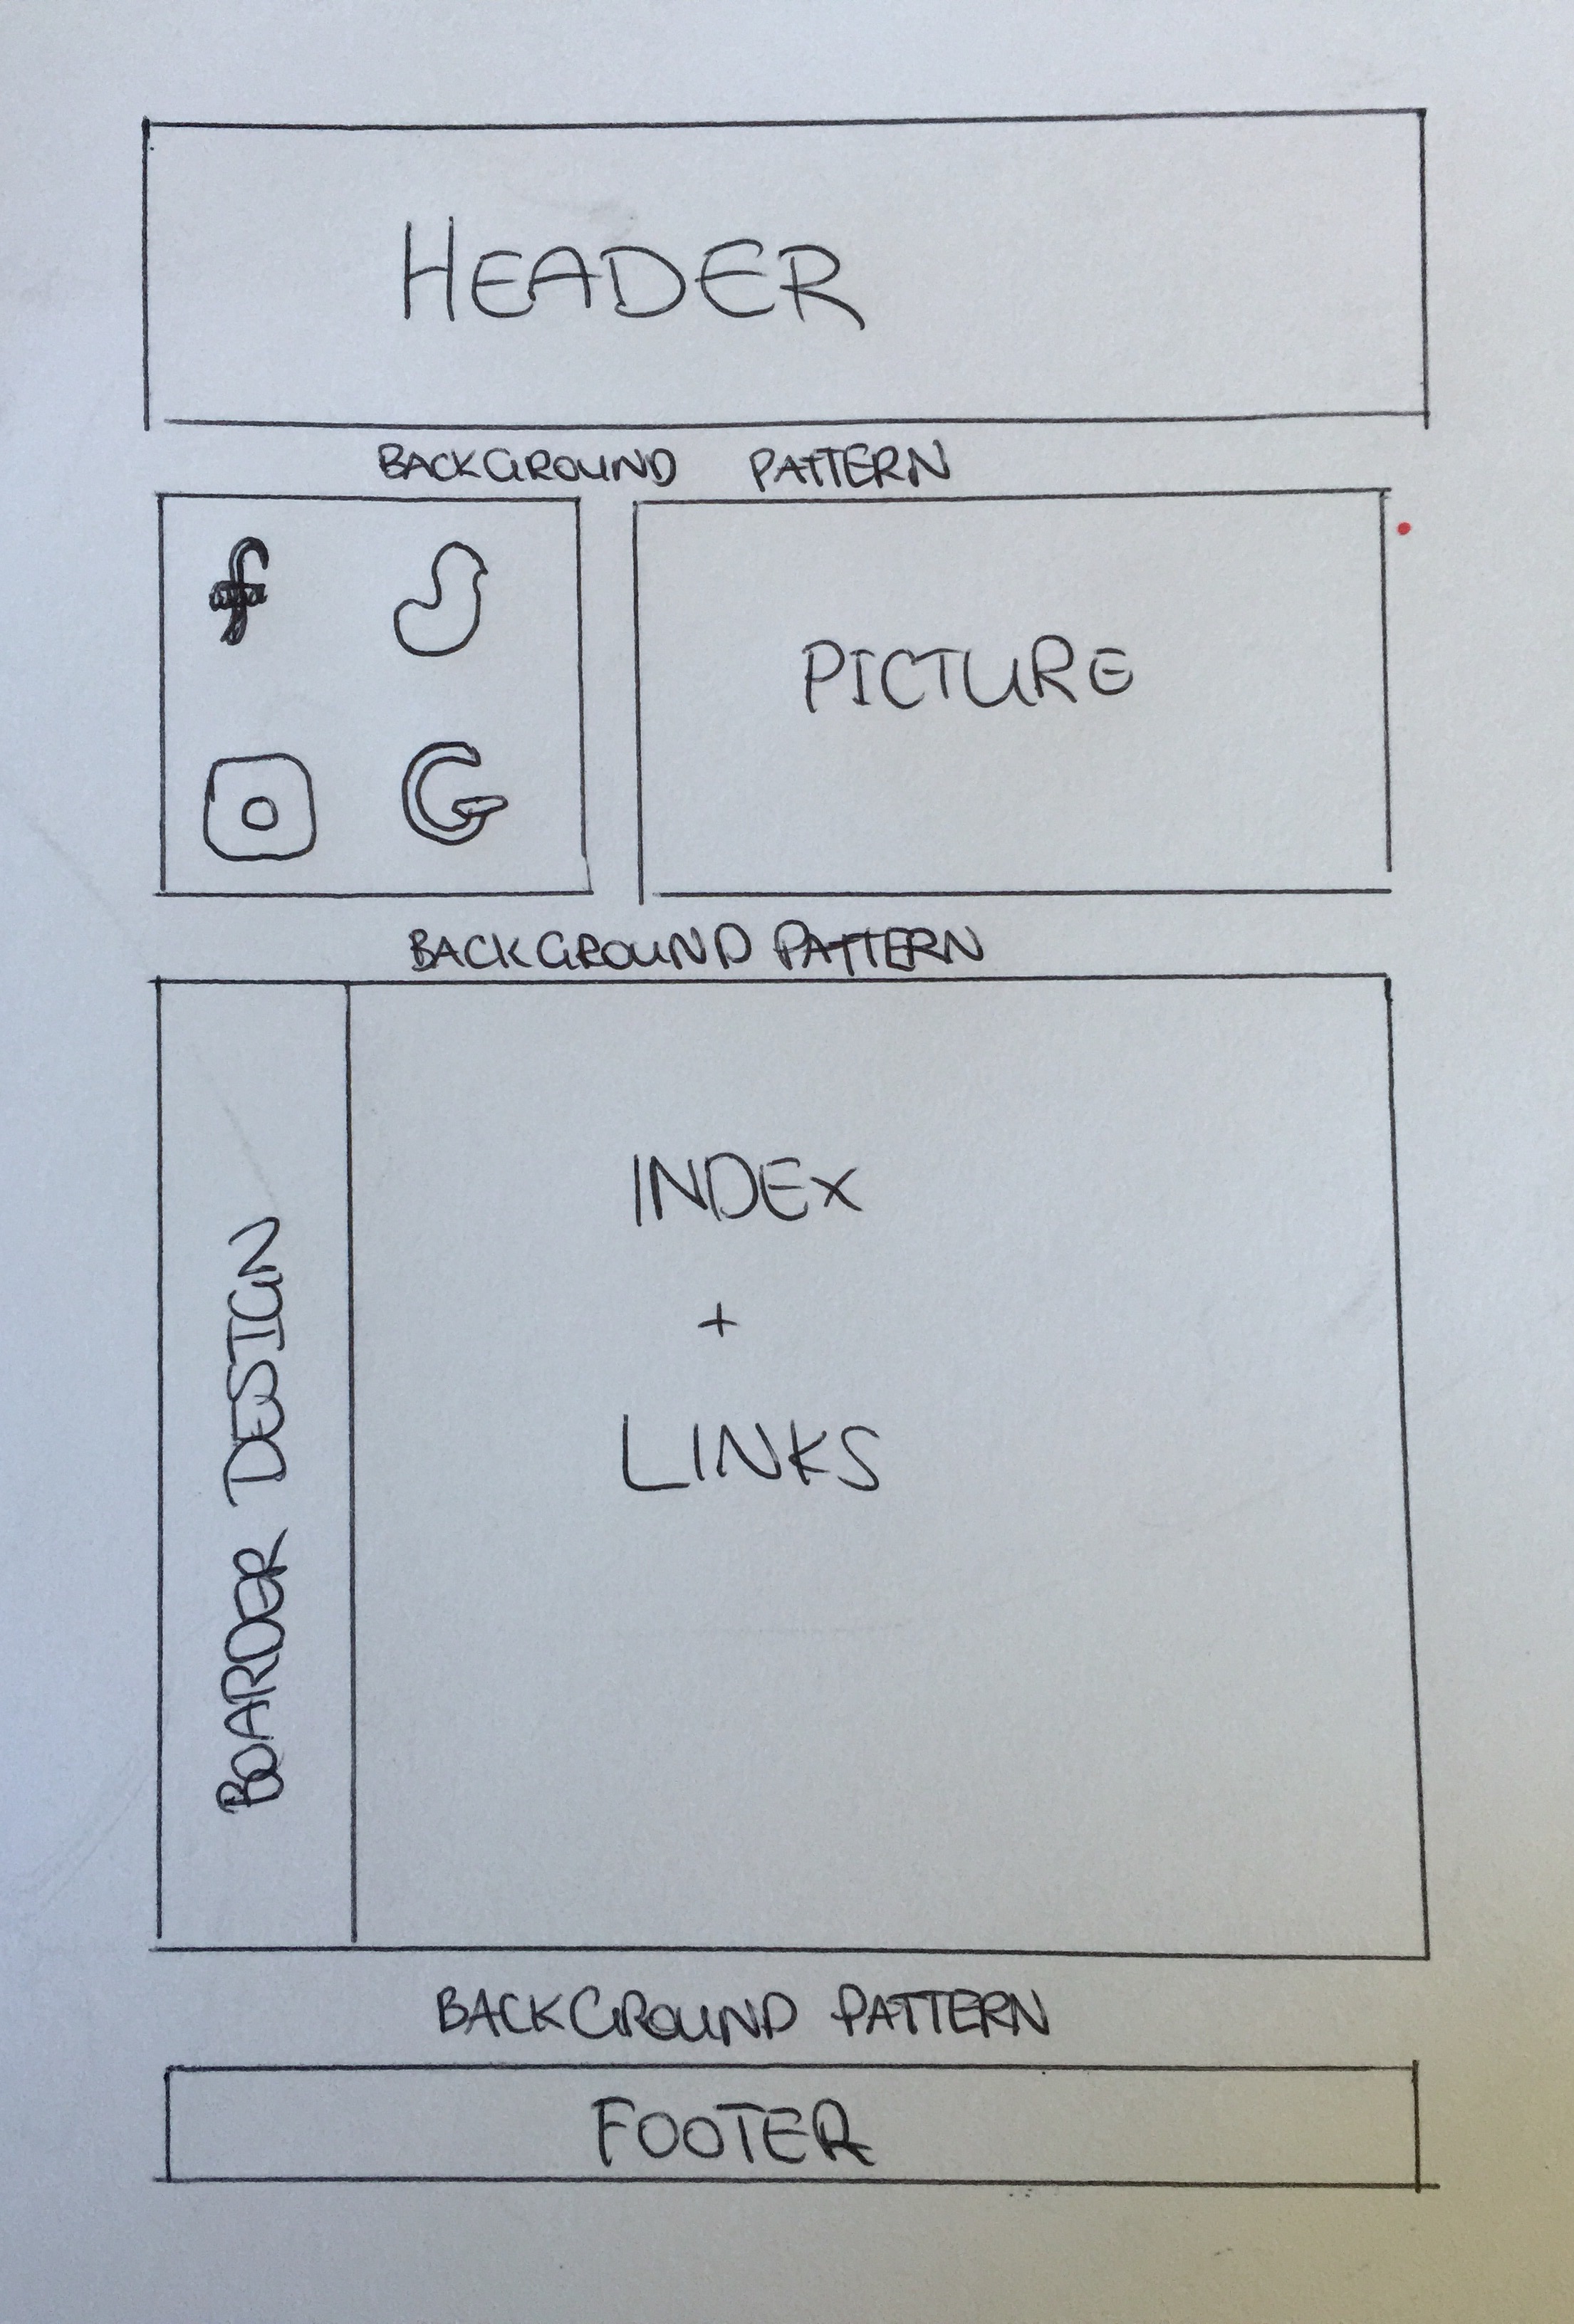 HEADER
BACKGROUND PATTERN
f
G
PICTURE
BACKGROUND PATTERN
BOARDER DESIGN
INDEX
+
LINKS
BACKGROUND PATTERN
FOOTER